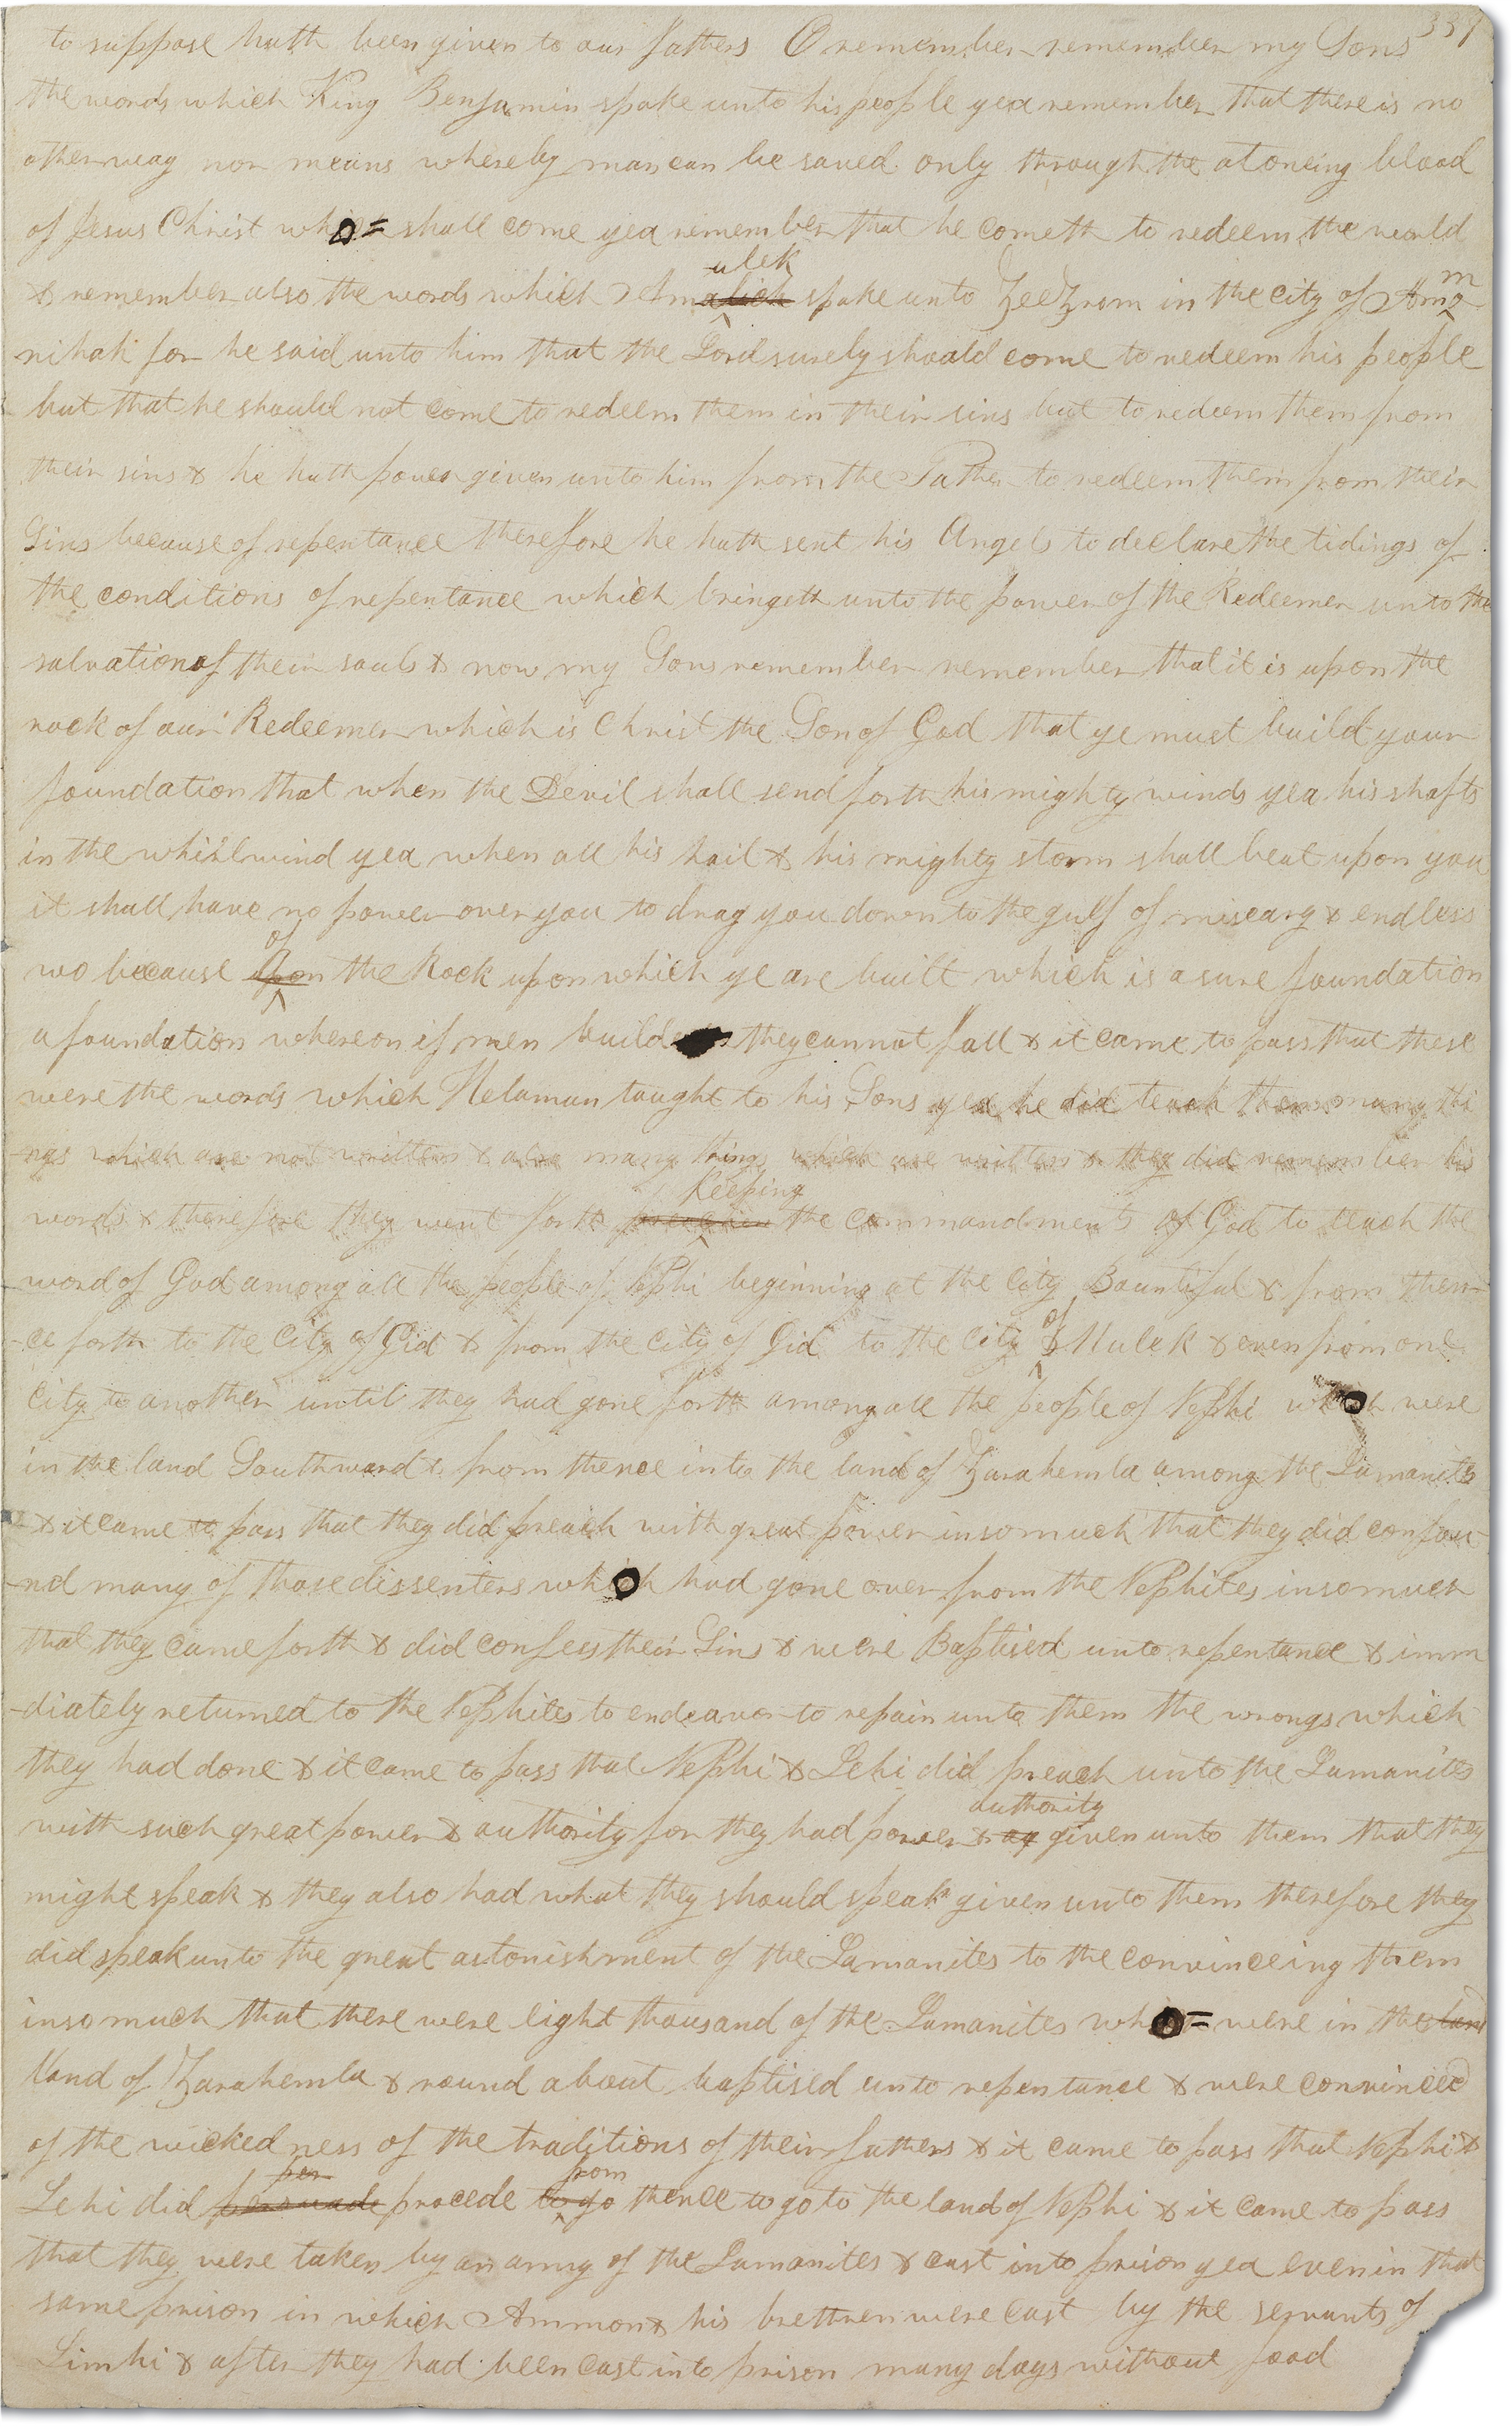 337
to suppose hath been given to our fathers O remember remember my Sons
the words which King Benjamin spake unto his people yea remember that there is no
other way nor means whereby man can be saved only through the atoneing blood
of Jesus Christ who= shall come yea remember that he cometh to redeem the world
ulek m
& remember also the words which Amalich spake unto Zeezrom in the city of Amo
nihah for he said unto him that the Lord surely should come to redeem his people
but that he should not come to redeem them in their sins but to redeem them from
their sins & he hath power given unto him from the Father to redeem them from their
Sins because of repentance therefore he hath sent his Angels to declare the tidings of
the conditions of repentance which bringeth unto the power of the Redeemer unto the
salvation of their souls & now my Sons remember remember that it is upon the
rock of our Redeemer which is Christ the Son of God that ye must build your
foundation that when the Devil shall send forth his mighty winds yea his shafts
in the whirlwind yea when all his hail & his mighty storm shall beat upon you
it shall have no power over you to drag you down to the gulf of miseary & endless
of
wo because upon the Rock upon which ye are built which is a sure foundation
a foundation whereon if men build they cannot fall & it came to pass that these
were the words which Helaman taught to his Sons yea he did teach them many thi
-ngs which are not written & also many things which are written & they did remember his
keeping
words & therefore they went forth the commandments of God to teach the
word of God among all the people of Nephi beginning at the City Bountiful & from then-
of
-ce forth to the City of Gid & from the City of Gid to the City & Mulek & even from one
City to another until they had gone forth among all the people of Nephi who were
in the land Southward & from thence into the land of Zarahemla among the Lamanites
& it came to pass that they did preach with great power insomuch that they did confou-
-nd many of those dissenters who had gone over from the Nephites insomuch
that they came forth & did confess their Sins & were Baptised unto repentance & imm
-diately returned to the Nephites to endeavor to repair unto them the wrongs which
they had done & it came to pass that Nephi & Lehi did preach unto the Lamanites
authority
with such great power & authority for they had power & ag given unto them that they
might speak & they also had what they should speak given unto them therefore they
did speak unto the great astonishment of the Lamanites to the convinceing them
insomuch that there were eight thousand of the Lamanites who= were in the land
land of Zarahemla & round about baptised unto repentance & were convinced
of the wickedness of the traditions of their fathers & it came to pass that Nephi &
per from
Lehi did persuade procede to go thence to go to the land of Nephi & it came to pass
that they were taken by an army of the Lamanites & cast into prison yea even in that
same prison in which Ammon & his brethren were cast by the servants of
Limhi & after they had been cast into prison many days without food